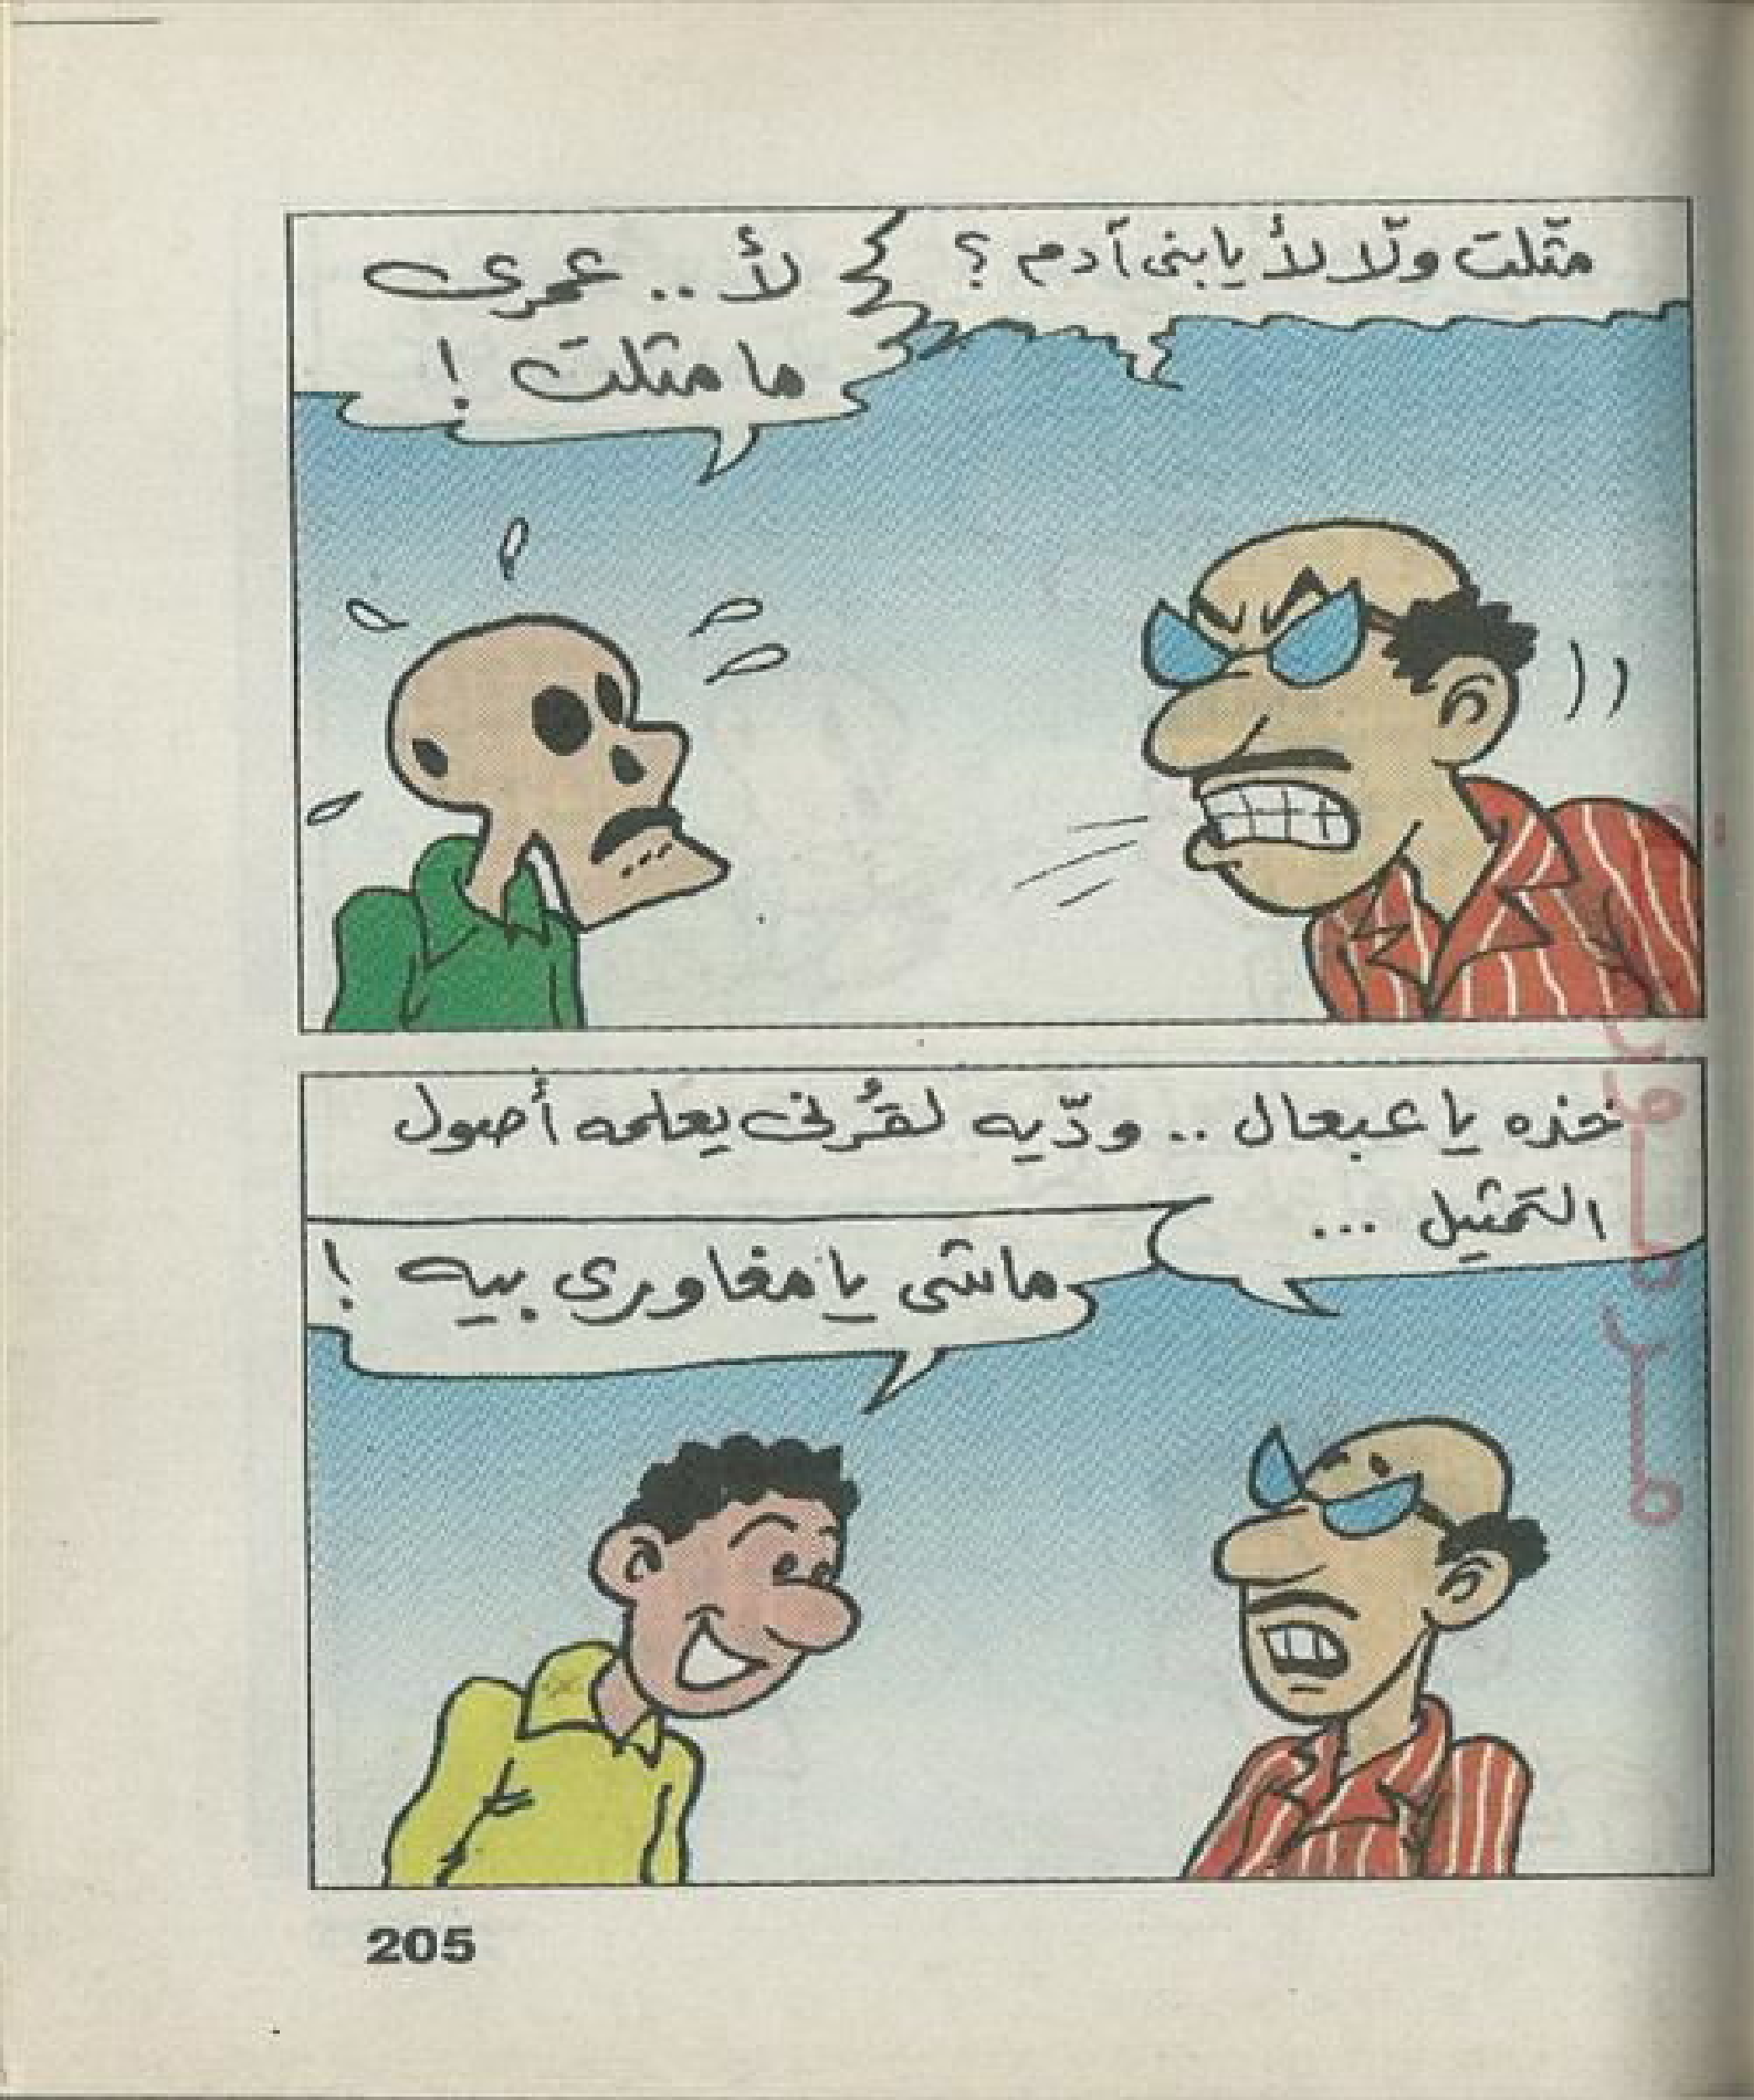 متّلت ولّا لأ يا بنى آدم ؟
لأ .. عمرى
ما متلت !
خذه يا عبعال .. ودّيه لقُرنى يعلمه أصول
التمثيل ...
ماشى يا مغاورى بيه !
205